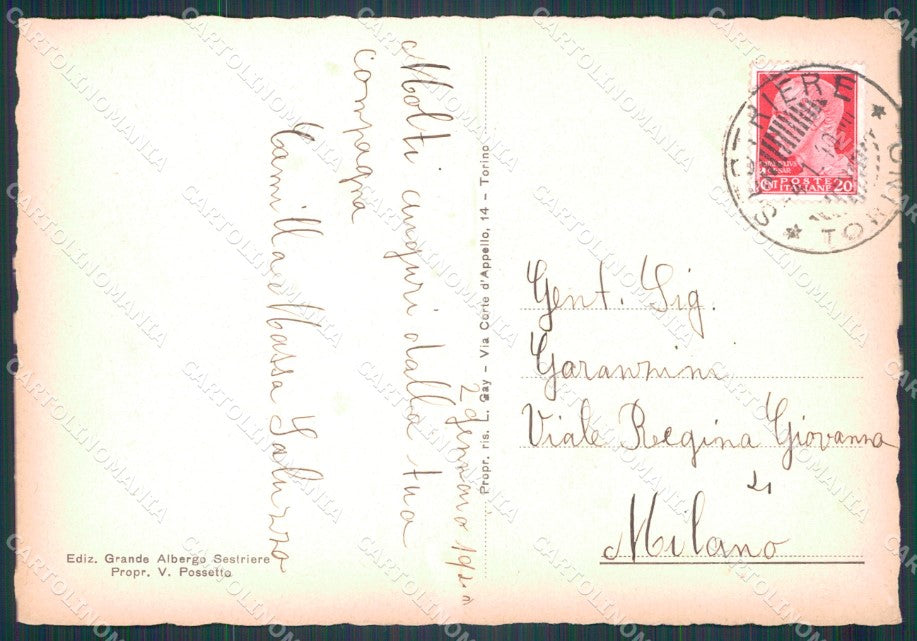 Molti auguri dalla tua
compagna
Camilla Massa Saluzzo
2 gennaio
Propr. ris. L. Gay - Via Corte d'Appello, 14 - Torino
Ediz. Grande Albergo Sestriere
Propr. V. Possetto
SESTRIERE
TORINO
POSTE
ITALIANE
20
Gent. Sig.
Garanzini
Viale Regina Giovanna
21
Milano
CARTOLINOMANIA